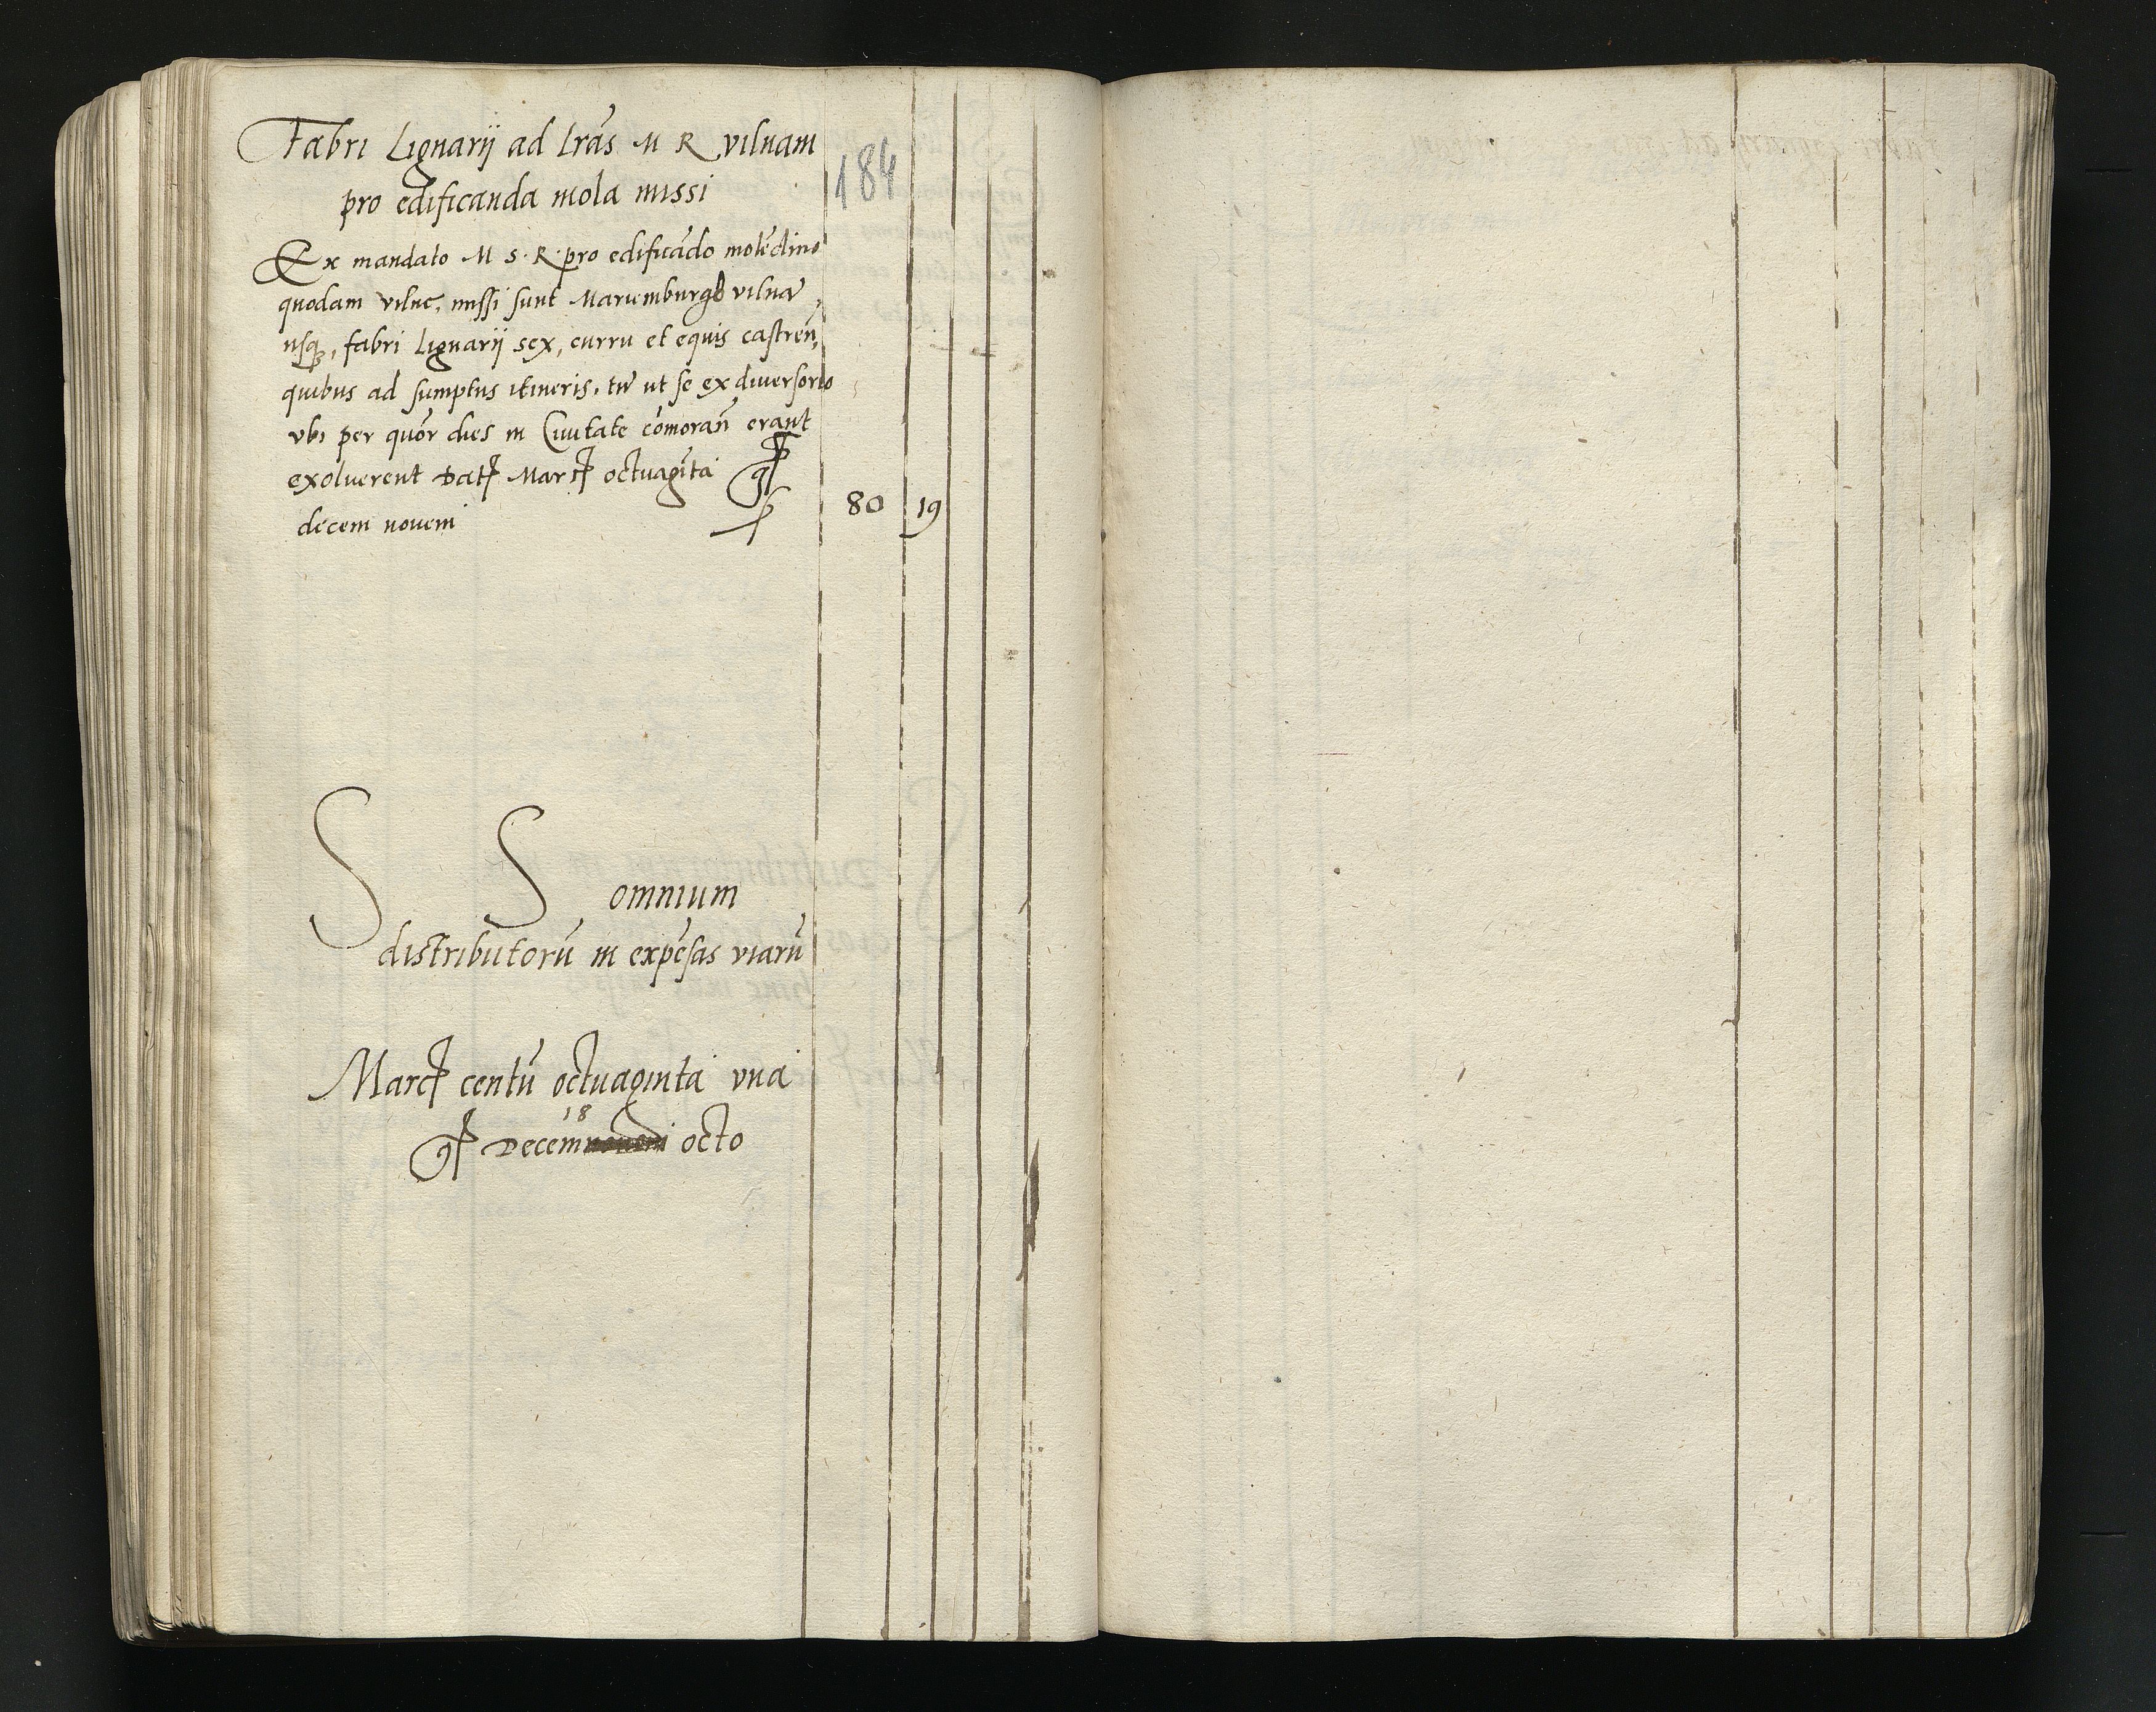 Fabri Lignarij ad lrãs M R vilnam
184
pro edificanda mola missi
Ex mandato M S. R. pro edificãdo molẽdino
quodam vilnę, missi sunt Mariemburgo vilnã
usq, fabri Lignarij sex, curru et equis castreñ,
quibus ad sumptus itineris, tũ ut se ex diversorio
vbi per quõr dies in Civitate cõmorañ erant
exolverent Dat Marc octuagĩta g
decem novem 80 19
S S omnium
distributorũ in expẽsas viarũ
Marc centũ octuaginta vna
18
g Decem novem octo